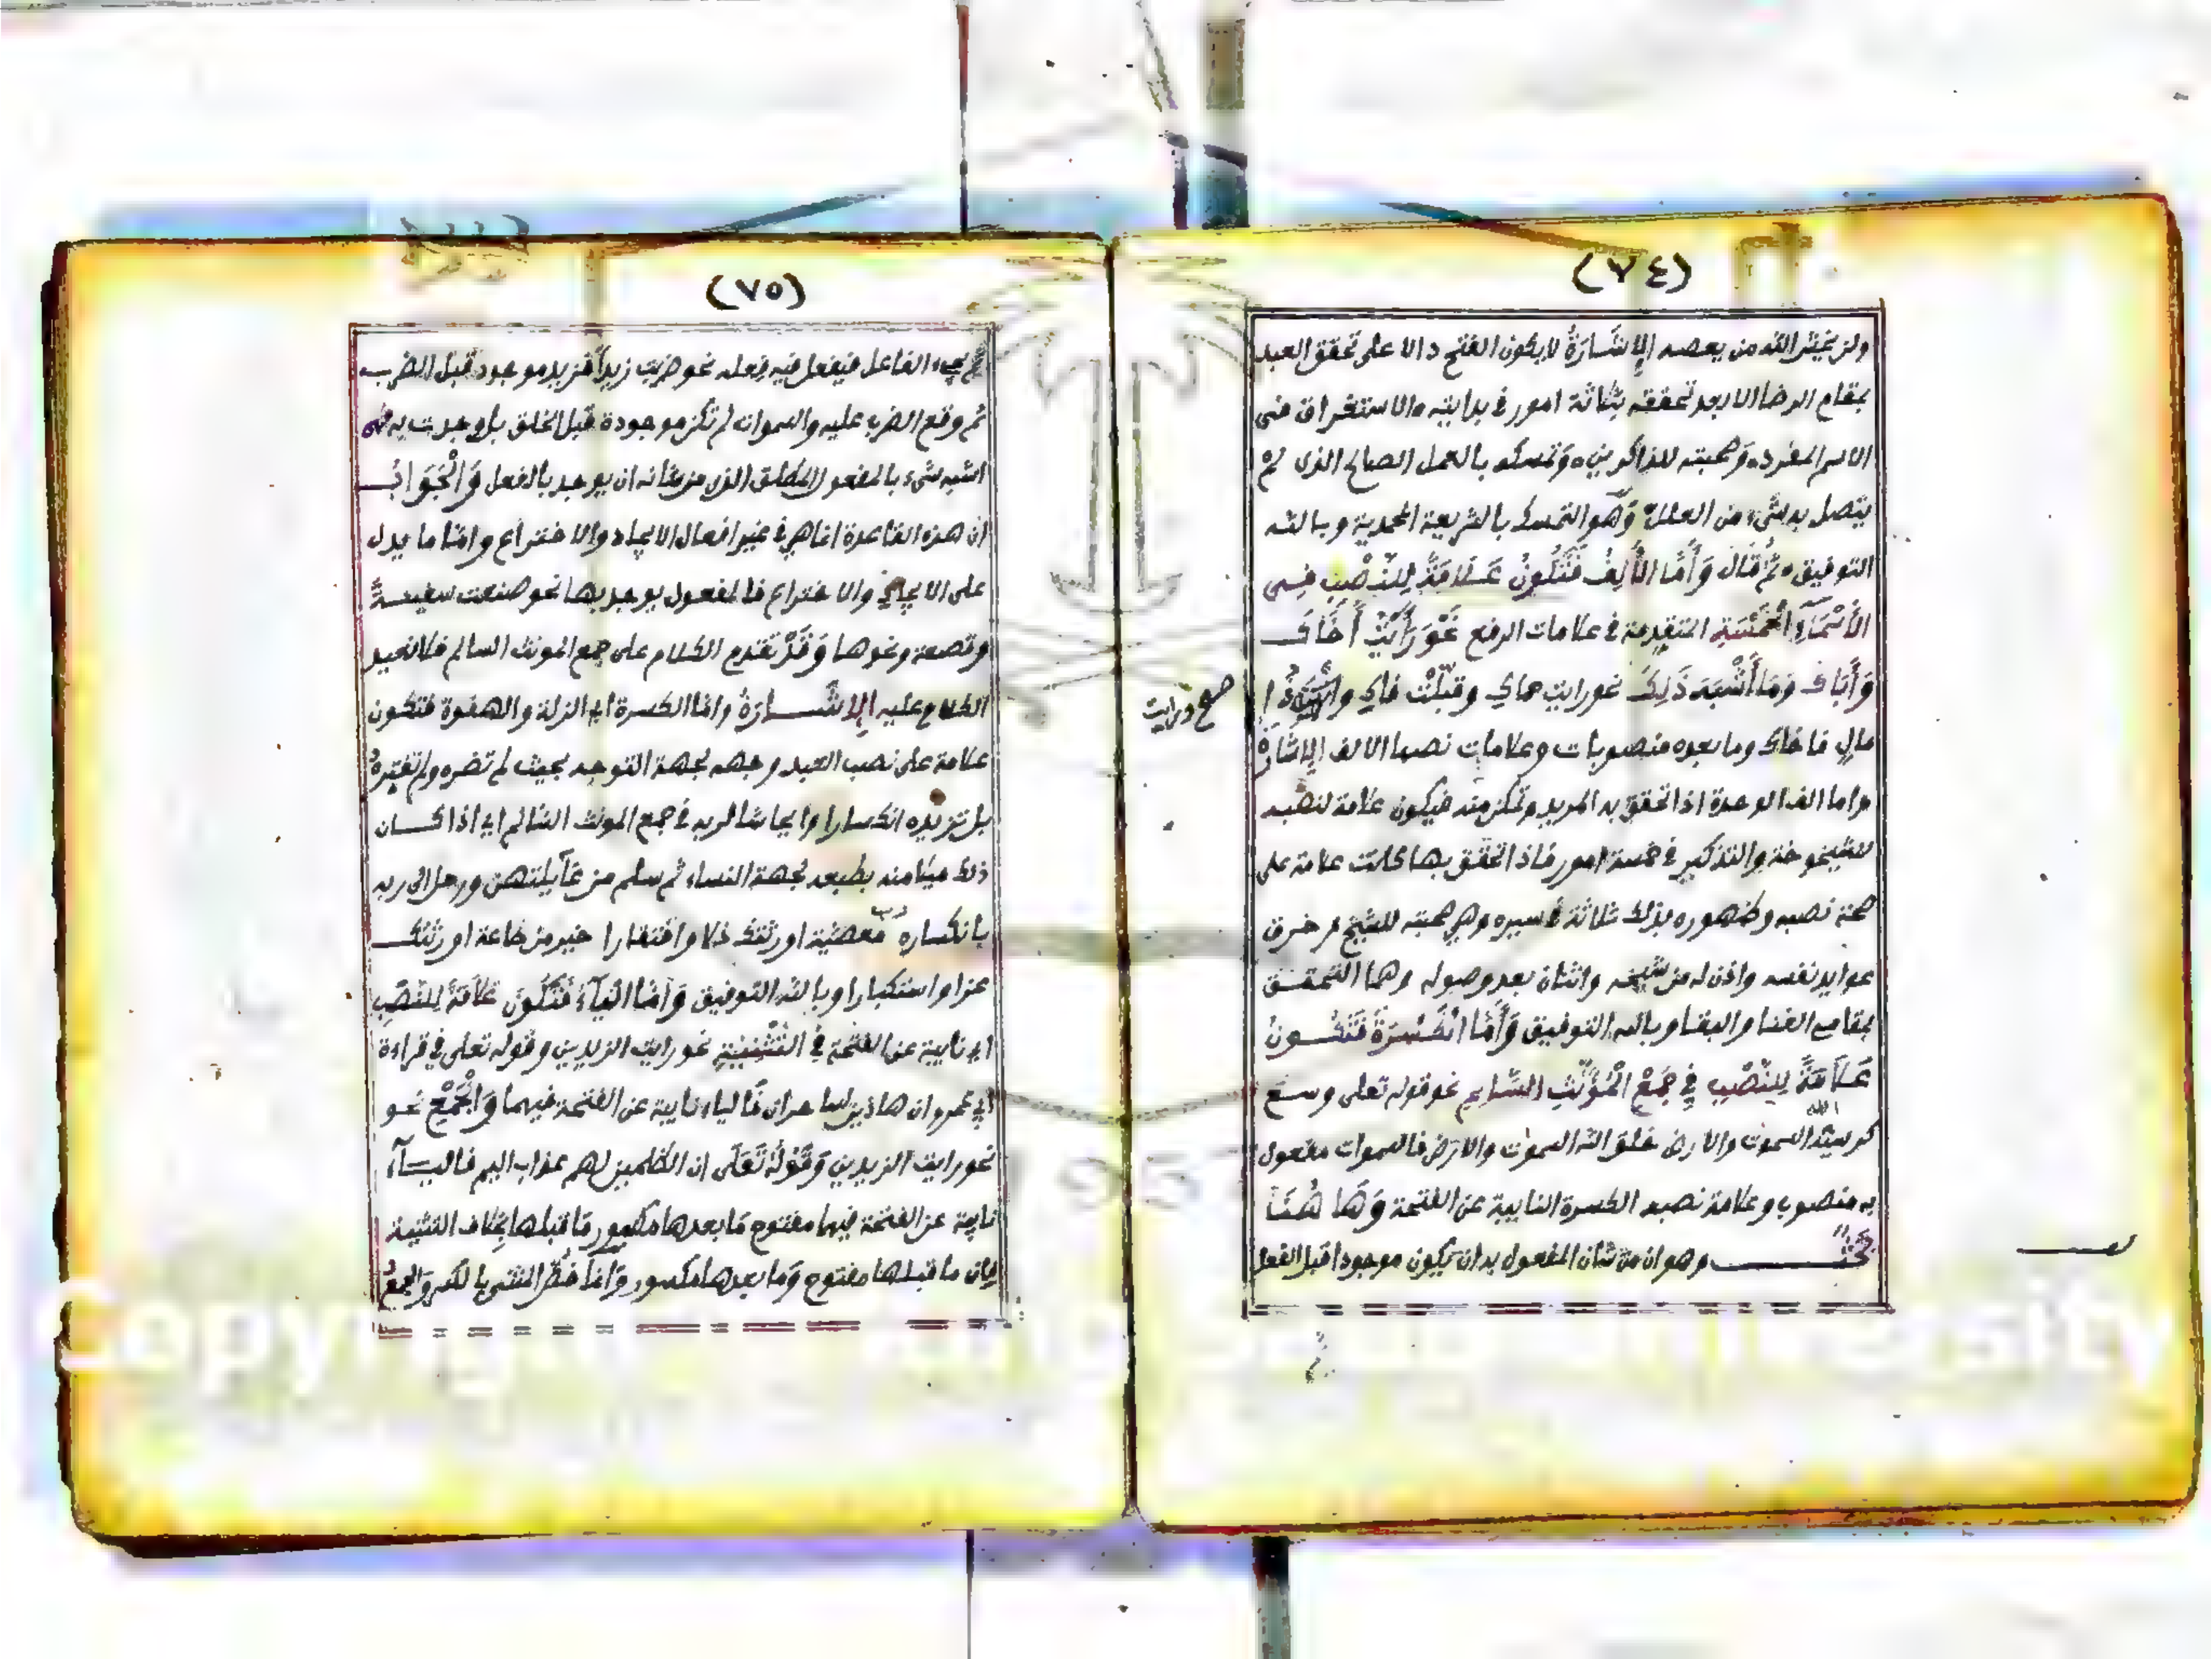 (٧٤)
ولن يخيّر الله من يعصه الإِشَارَةُ لا يكون الفتح دالا على تحقق العبد
بمقام الرضا الا بعد تحققه بثلاثة امور في بدايته والاستغراق في
الاسم المفرد وصحبته للذاكرين وتمسكه بالعمل الصالح الذي لم
يتصل به شيء من العلل وهو التمسك بالشريعة المحمدية وبالله
التوفيق ثم قَالَ وَأَمَّا الْأَلِفُ فَتَكُونُ عَلَامَةً لِلنَّصْبِ فِي
الْأَسْمَآءِ الْخَمْسَةِ المتقدمة في علامات الرفع نَحْوَ رَأَيْتُ أَخَاكَ
وَأَبَاكَ وَمَا أَشْبَهَ ذَلِكَ نحو رايت حماك وقبّلت فاك
صح ورايت
مال فاخاك وما بعده منصوبات وعلامات نصبها الالف الإشارة
واما الف الوحدة اذا تحقق به المريد وتمكن منه فيكون علامة لنصبه
للشيخوخة والتذكير في خمسة امور فاذا تحقق بها كانت علامة على
صحة نصبه وظهوره بذلك ثلاثة في سيره وهي صحبته للشيخ وخرق
عوايد نفسه واذن له من شيخه واثنان بعد وصوله وهما التحقق
بمقام الفنا والبقا وبالله التوفيق وَأَمَّا الْكَسْرَةُ فَتَكُونُ
عَلَامَةً لِلنَّصْبِ فِي جَمْعِ الْمُؤَنَّثِ السَّالِمِ نحو قوله تعلى وسع
كرسيّه السموت والارض خلق الله السموت والارض فالسموات مفعول
به منصوب وعلامة نصبه الكسرة النايبة عن الفتحة وَهَا هُنَا
بَحْثٌ وهو ان من شان المفعول به ان يكون موجودا قبل الفعل
(٧٥)
ثم يجيء الفاعل فيفعل فيه فعله نحو ضربت زيداً فزيد موجود قبل الضرب
ثم وقع الضرب عليه والسموات لم تكن موجودة قبل الخلق بل وجدت به فهي
اشبه شيء بالمفعول المطلق الذي من شانه ان يوجد بالفعل وَالْجَوَابُ
ان هذه القاعدة انما هي في غير افعال الايجاد والاختراع وامّا ما يدل
على الايجاد والاختراع فالمفعول يوجد بها نحو صنعت سفينةً
وقصعة ونحوها وَقَدْ تقدم الكلام على جمع المونث السالم فلا نعيد
الكلام عليه الإِشَارَةُ وامّا الكسرة اي الزلة والهفوة فتكون
علامة على نصب العبد وجهه لجهة التوجه بحيث لم تضره ولم تفتره
بل تزيده انكسارا وايحاشا لربه في جمع المونث السّالم اي اذا كان
ذلك ميلا منه بطبعه لجهة النساء ثم سلم من غآيلتهن ورحل الى ربه
بانكساره رب معصية اورثتك ذلا وافتقارا خير من طاعة اورثتك
عزا واستكبارا وبالله التوفيق وَأَمَّا الْيَآءُ فَتَكُونُ عَلَامَةً لِلنَّصْبِ
اي نايبة عن الفتحة في التَّثْنِيَةِ نحو رايت الزيدين وقوله تعلى في قراءة
ابي عمرو ان هاذين لساحران فالياء نايبة عن الفتحة فيهما وَالْجَمْعِ نحو
نحو رايت الزيدين وَقَوْلُهُ تَعَلَى ان الظلمين لهم عذاب اليم فاليآء
نايبة عن الفتحة فيها مفتوح ما بعدها مكسور ما قبلها بخلاف التثنية
فان ما قبلها مفتوح وما بعدها مكسور